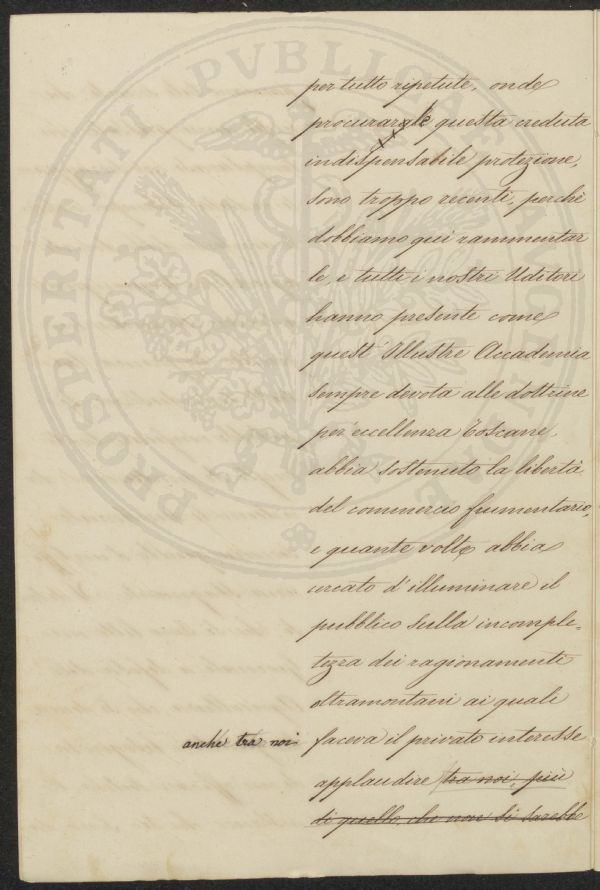 PROSPERITATI PVBLICAE AVGENDAE
per tutto ripetute, onde
procurarsi le questa creduta
indispensabile protezione,
sono troppo recenti, perchè
dobbiamo qui rammentar
le, e tutti i nostri Uditori
hanno presente come
quest' Illustre Accademia
sempre devota alle dottrine
per eccellenza Toscane,
abbia sostenuto la libertà
del commercio frumentario,
e quante volte abbia
cercato d'illuminare il
pubblico sulla incomple=
tezza dei ragionamenti
oltramontani ai quali
anche tra noi faceva il privato interesse
applaudire tra noi, più
di quello, che non si sarebbe